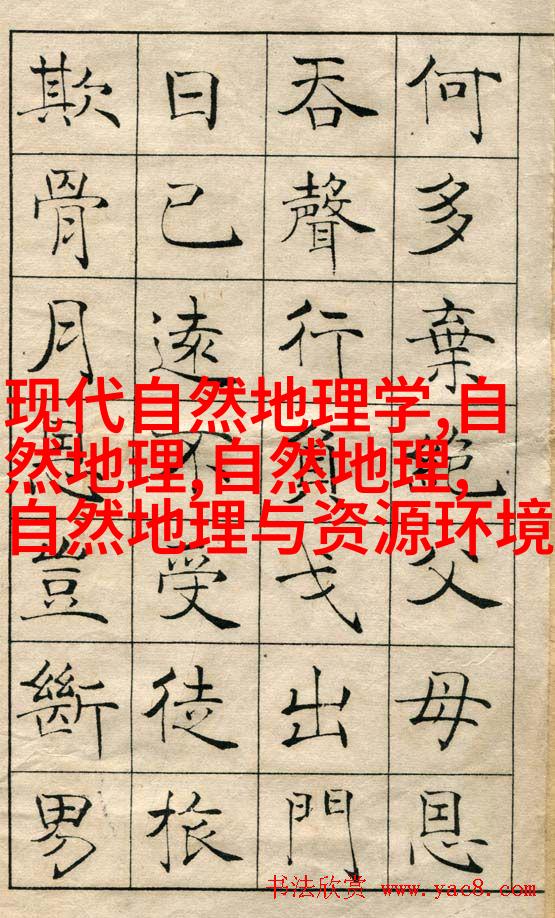 何多棄絕父母恩
吞聲行負戈出門
日已遠受徒旅
欺骨月豈斷男
现代自然地理学,自
然地理,自然地理,
自然地理与资源环境
书法欣赏 www.yac8.com